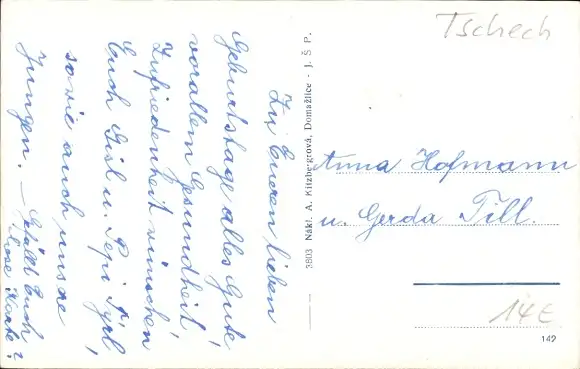 Tschech
Zu Eueren lieben
Geburtstage alles Gute
vorallem Gesundheit,
Zufriedenheit wünschen
Euch Gisl u. Pepi
sowie auch unsre
Jungen. –
Gefällt Euch
diese Karte?
3803 Nákl. A. Kitzbergrová, Domažlice - J. Š P.
Anna Hofmann
u. Gerda Till.
14€
149